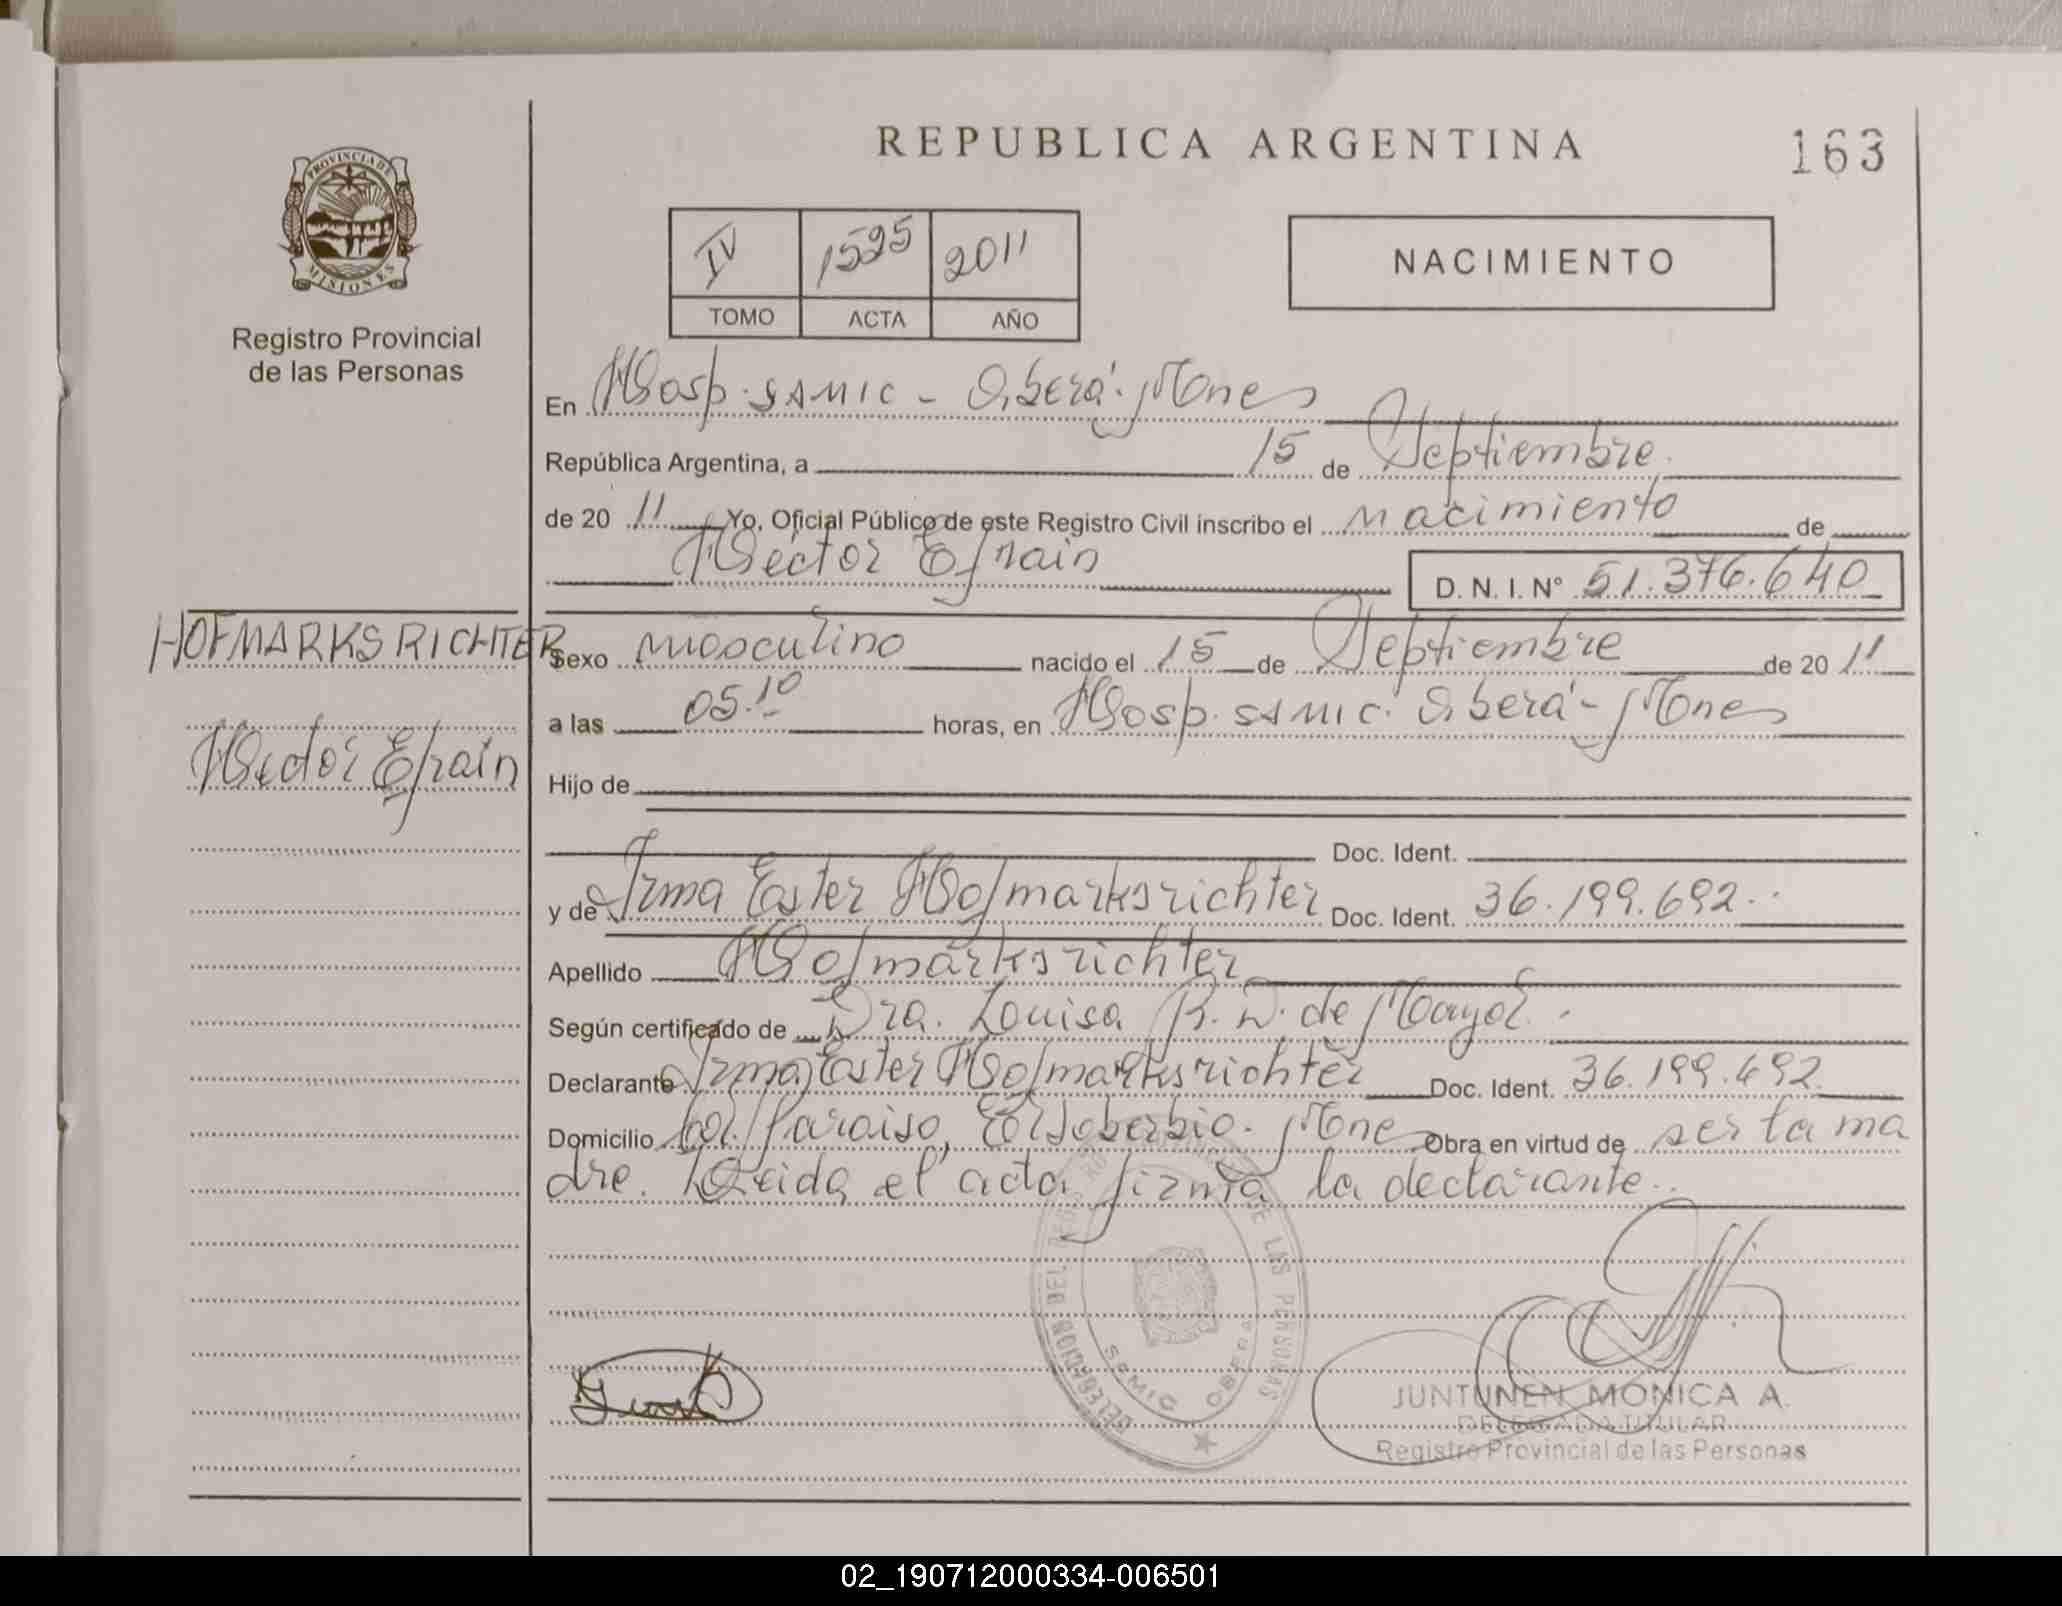 REPUBLICA ARGENTINA
163
PROVINCIA DE
MISIONES
Registro Provincial
de las Personas
IV 1525 2011
TOMO ACTA AÑO
NACIMIENTO
En Hosp. SAMIC - Oberá - Mnes
República Argentina, a 15 de Septiembre
de 20 11 Yo, Oficial Público de este Registro Civil inscribo el nacimiento de
Héctor Efraín
D. N. I. N° 51.376.640
HOFMARKSRICHTER
Héctor Efraín
Sexo masculino nacido el 15 de Septiembre de 20 11
a las 05.10 horas, en Hosp. SAMIC. Oberá - Mnes
Hijo de
Doc. Ident.
y de Irma Ester Hofmarksrichter Doc. Ident. 36.199.692
Apellido Hofmarksrichter
Según certificado de Dra. Louisa R. W. de Mayol
Declarante Irma Ester Hofmarksrichter Doc. Ident. 36.199.692
Domicilio Col. Paraiso, El Soberbio. Mnes Obra en virtud de ser la ma
dre. Leida el acta firma la declarante.
DELEGACION DEL REGISTRO DE LAS PERSONAS
SAMIC OBERA
JUNTUNEN MONICA A.
DELEGADA TITULAR
Registro Provincial de las Personas
02_190712000334-006501